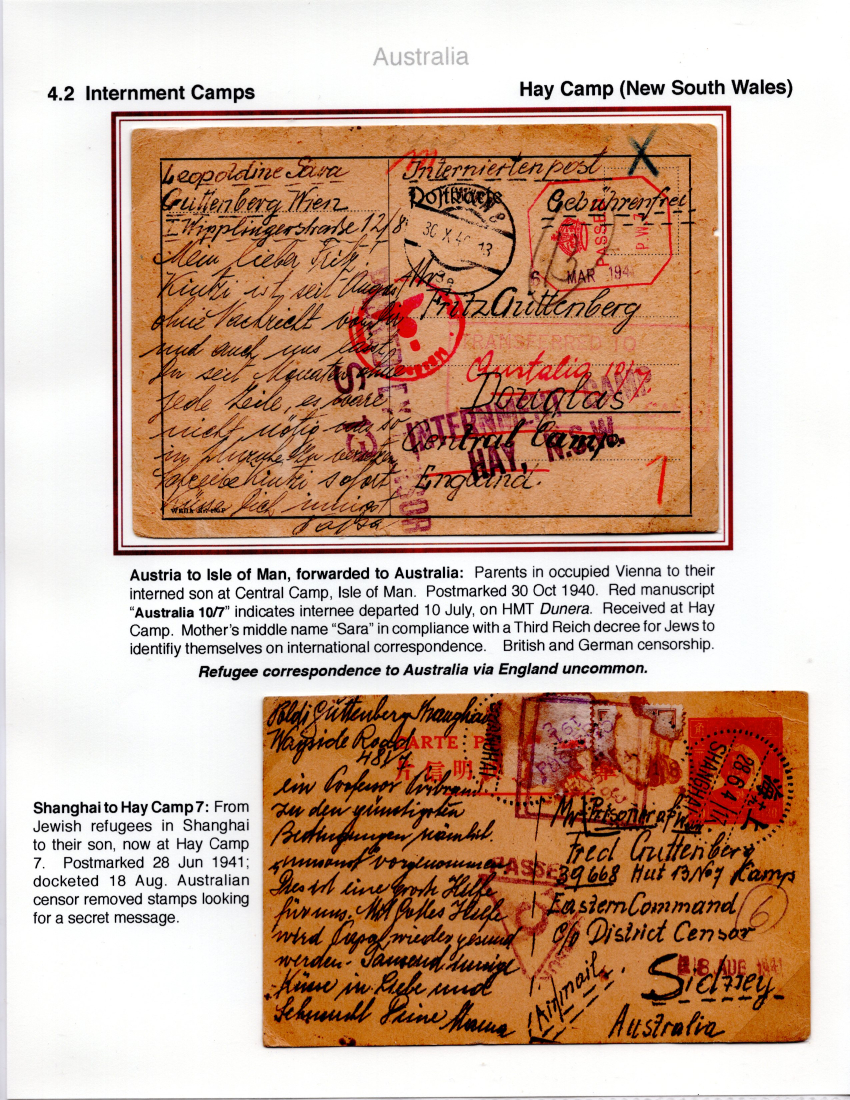 Australia
4.2 Internment Camps
Hay Camp (New South Wales)
Leopoldine Sara
Guttenberg Wien
I Wipplingerstraße 12/8
Mein lieber Fritz!
Kintzi ist seit
ohne Nachricht von
und auch uns
Du seit Monaten
jede Zeile, es wäre
nicht nötig so
sofort
Dich innigst
Internierten post
Postkarte
Gebührenfrei
X
30.X.40.13
PASSED
P.W.
6 MAR 1941
Mr.
Fritz Guttenberg
TRANSFERRED TO
Australia 10/7
Douglas
INTERNMENT CAMP
Central Camp.
HAY, N.S.W.
England.
1
Austria to Isle of Man, forwarded to Australia: Parents in occupied Vienna to their
interned son at Central Camp, Isle of Man. Postmarked 30 Oct 1940. Red manuscript
“Australia 10/7” indicates internee departed 10 July, on HMT Dunera. Received at Hay
Camp. Mother's middle name “Sara” in compliance with a Third Reich decree for Jews to
identifiy themselves on international correspondence. British and German censorship.
Refugee correspondence to Australia via England uncommon.
Shanghai to Hay Camp 7: From
Jewish refugees in Shanghai
to their son, now at Hay Camp
7. Postmarked 28 Jun 1941;
docketed 18 Aug. Australian
censor removed stamps looking
for a secret message.
Poldi Guttenberg Shanghai
Wayside Road
481/7
CARTE P
片信明
ein Professor
zu den günstigsten
Bedingungen nämlich
umsonst vorgenommen
Dies ist eine große Hilfe
für uns. Mit Gottes Hilfe
wird Papa wieder gesund
werden. Tausend innige
Küsse in Liebe und
Sehnsucht Deine Mama
SHANGHAI
28.6.41
SHANGHAI
Mr. Prisoner of War
Fred Guttenberg
PASSED
39668 Hut 13 No 7 Kamp
Eastern Command
6
C/o District Censor
18 AUG 1941
Sidney
(Air)mail
Australia